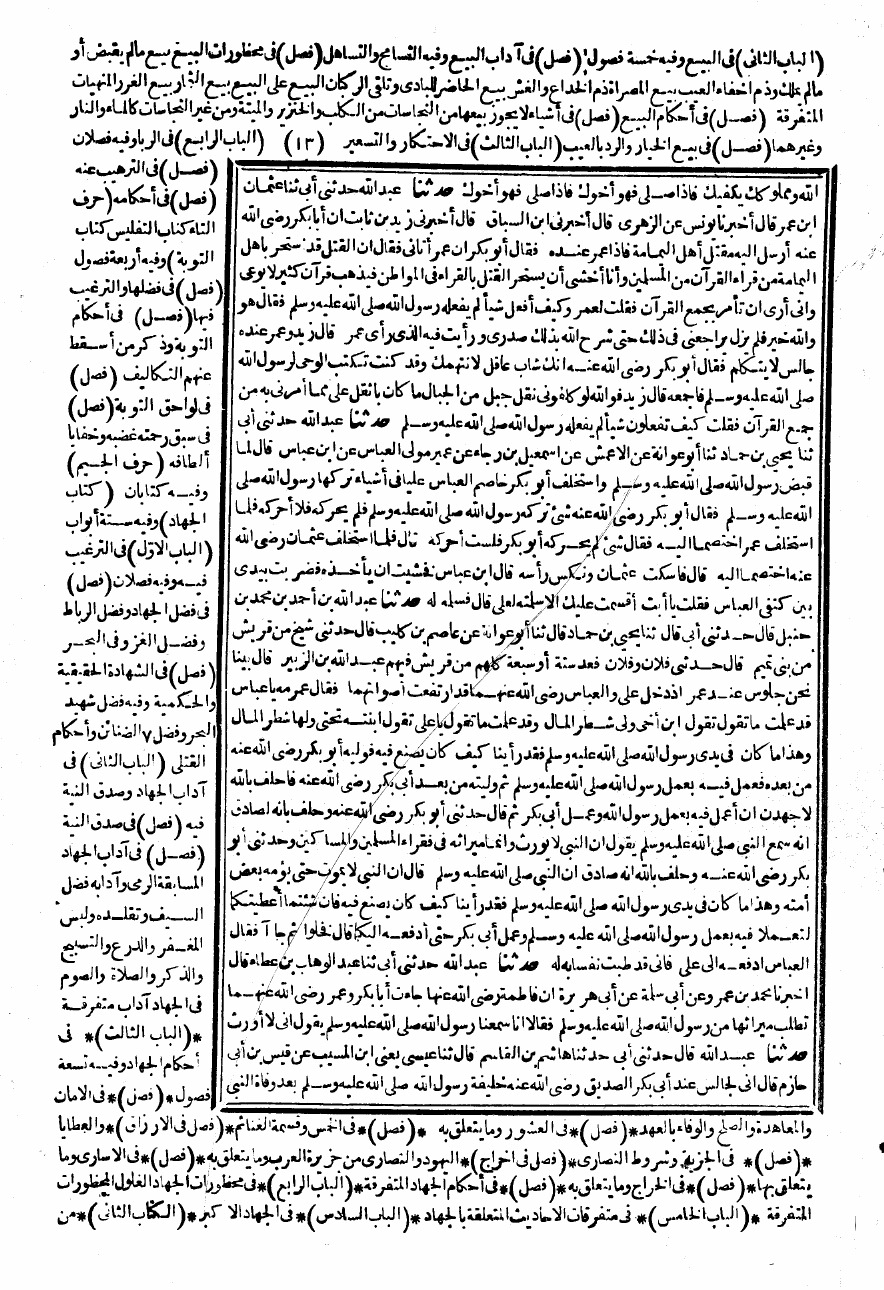 (الباب الثاني) في البيع وفيه خمسة فصول (فصل) في آداب البيع وفيه التسامح والتساهل (فصل) في محظورات البيع بيع مالم يقبض أو
مالم يملك وذم اخفاء العيب بيع المصراة ذم الخداع والغش بيع الحاضر للبادي وتلقي الركبان البيع على البيع بيع الثمار بيع الغرر المنهيات
المتفرقة (فصل) في أحكام البيع (فصل) في أشياء لا يجوز بيعها من النجاسات من الكلب والخنزير والميتة ومن غير النجاسات كالماء والنار
وغيرهما (فصل) في بيع الخيار والرد بالعيب (الباب الثالث) في الاحتكار والتسعير (١٣) (الباب الرابع) في الربا وفيه فصلان
(فصل) في الترهيب عنه
(فصل) في أحكامه (حرف
التاء كتاب التفليس كتاب
التوبة) وفيه أربعة فصول
(فصل) في فضلها والترغيب
فيها (فصل) في أحكام
التوبة وذكر من أسقط
عنهم التكاليف (فصل)
في لواحق التوبة (فصل)
في سبق رحمته غضبه وخفايا
ألطافه (حرف الجيم)
وفيه كتابان (كتاب
الجهاد) وفيه ستة أبواب
(الباب الاول) في الترغيب
فيه وفيه فصلان (فصل)
في فضل الجهاد وفضل الرباط
وفضل الغزو في البحر
(فصل) في الشهادة الحقيقية
والحكمية وفيه فضل شهيد
البحر وفضل ٧ الضنائن وأحكام
القتلى (الباب الثاني) في
آداب الجهاد وصدق النية
فيه (فصل) في صدق النية
(فصل) في آداب الجهاد
المسابقة الرمي وآدابه فضل
السيف وتقلده ولبس
المغفر والدرع والتسبيح
والذكر والصلاة والصوم
في الجهاد آداب متفرقة
*(الباب الثالث)* في
أحكام الجهاد وفيه تسعة
فصول *(فصل)* في الامان
الله ومملوكك يكفيك فاذا صلى فهو أخوك فاذا صلى فهو أخوك حدثنا عبد الله حدثني أبي ثنا عثمان
ابن عمر قال أخبرنا يونس عن الزهري قال أخبرني ابن السباق قال أخبرني زيد بن ثابت ان أبا بكر رضي الله
عنه أرسل اليه مقتل أهل اليمامة فاذا عمر عنده فقال أبو بكر ان عمر أتاني فقال ان القتل قد استحر بأهل
اليمامة من قراء القرآن من المسلمين وأنا أخشى أن يستحر القتل بالقراء في المواطن فيذهب قرآن كثير لا يوعى
واني أرى ان تأمر بجمع القرآن فقلت لعمر وكيف أفعل شيأ لم يفعله رسول الله صلى الله عليه وسلم فقال هو
والله خير فلم يزل يراجعني في ذلك حتى شرح الله بذلك صدري ورأيت فيه الذي رأى عمر قال زيد وعمر عنده
جالس لا يتكلم فقال أبو بكر رضي الله عنه انك شاب عاقل لا نتهمك وقد كنت تكتب الوحي لرسول الله
صلى الله عليه وسلم فاجمعه قال زيد فوالله لو كلفوني نقل جبل من الجبال ما كان باثقل علي مما أمرني به من
جمع القرآن فقلت كيف تفعلون شيأ لم يفعله رسول الله صلى الله عليه وسلم حدثنا عبد الله حدثني أبي
ثنا يحيى بن حماد ثنا أبو عوانة عن الاعمش عن اسمعيل بن رجاء عن عمير مولى العباس عن ابن عباس قال لما
قبض رسول الله صلى الله عليه وسلم واستخلف أبو بكر خاصم العباس عليا في أشياء تركها رسول الله صلى
الله عليه وسلم فقال أبو بكر رضي الله عنه شئ تركه رسول الله صلى الله عليه وسلم فلم يحركه فلا أحركه فلما
استخلف عمر اختصما اليه فقال شئ لم يحركه أبو بكر فلست أحركه قال فلما استخلف عثمان رضي الله
عنه اختصما اليه قال فاسكت عثمان ونكس رأسه قال ابن عباس فخشيت ان يأخذه فضربت بيدي
بين كتفي العباس فقلت يا أبت أقسمت عليك الا سلمته لعلي قال فسلمه له حدثنا عبد الله بن أحمد بن محمد بن
حنبل قال حدثني أبي قال ثنا يحيى بن حماد قال ثنا أبو عوانة عن عاصم بن كليب قال حدثني شيخ من قريش
من بني تميم قال حدثني فلان وفلان فعد ستة أو سبعة كلهم من قريش فيهم عبد الله بن الزبير قال بينا
نحن جلوس عند عمر اذ دخل علي والعباس رضي الله عنهما قد ارتفعت أصواتهما فقال عمر مه يا عباس
قد علمت ما تقول تقول ابن أخي ولي شطر المال وقد علمت ما تقول يا علي تقول ابنته تحتي ولها شطر المال
وهذا ما كان في يدي رسول الله صلى الله عليه وسلم فقد رأينا كيف كان يصنع فيه فوليه أبو بكر رضي الله عنه
من بعده فعمل فيه بعمل رسول الله صلى الله عليه وسلم ثم وليته من بعد أبي بكر رضي الله عنه فاحلف بالله
لاجهدن ان أعمل فيه بعمل رسول الله وعمل أبي بكر ثم قال حدثني أبو بكر رضي الله عنه وحلف بانه لصادق
انه سمع النبي صلى الله عليه وسلم يقول ان النبي لا يورث وانما ميراثه في فقراء المسلمين والمساكين وحدثني أبو
بكر رضي الله عنه وحلف بالله انه صادق ان النبي صلى الله عليه وسلم قال ان النبي لا يموت حتى يؤمه بعض
أمته وهذا ما كان في يدي رسول الله صلى الله عليه وسلم فقد رأينا كيف كان يصنع فيه فان شئتما أعطيتكما
لتعملا فيه بعمل رسول الله صلى الله عليه وسلم وعمل أبي بكر حتى أدفعه اليكما قال فخلوا ثم جاآ فقال
العباس ادفعه الى علي فاني قد طبت نفسا به له حدثنا عبد الله حدثني أبي ثنا عبد الوهاب بن عطاء قال
اخبرنا محمد بن عمر وعن أبي سلمة عن أبي هريرة ان فاطمة رضي الله عنها جاءت أبا بكر وعمر رضي الله عنهما
تطلب ميراثها من رسول الله صلى الله عليه وسلم فقالا انا سمعنا رسول الله صلى الله عليه وسلم يقول اني لا أورث
حدثنا عبد الله قال حدثني أبي حدثنا هاشم بن القاسم قال ثنا عيسى يعني ابن المسيب عن قيس بن أبي
حازم قال اني لجالس عند أبي بكر الصديق رضي الله عنه خليفة رسول الله صلى الله عليه وسلم بعد وفاة النبي
والمعاهدة والصلح والوفاء بالعهد *(فصل)* في العشور وما يتعلق به *(فصل)* في الخمس وقسمة الغنائم *(فصل في الارزاق)* والعطايا
*(فصل)* في الجزية وشروط النصارى *(فصل في اخراج)* اليهود والنصارى من جزيرة العرب وما يتعلق به *(فصل)* في الاسارى وما
يتعلق بها *(فصل)* في الخراج وما يتعلق به *(فصل)* في أحكام الجهاد المتفرقة *(الباب الرابع)* في محظورات الجهاد الغلول المحظورات
المتفرقة *(الباب الخامس)* في متفرقات الاحاديث المتعلقة بالجهاد *(الباب السادس)* في الجهاد الاكبر *(الكتاب الثاني)* من